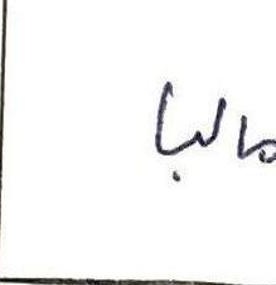 طالبا